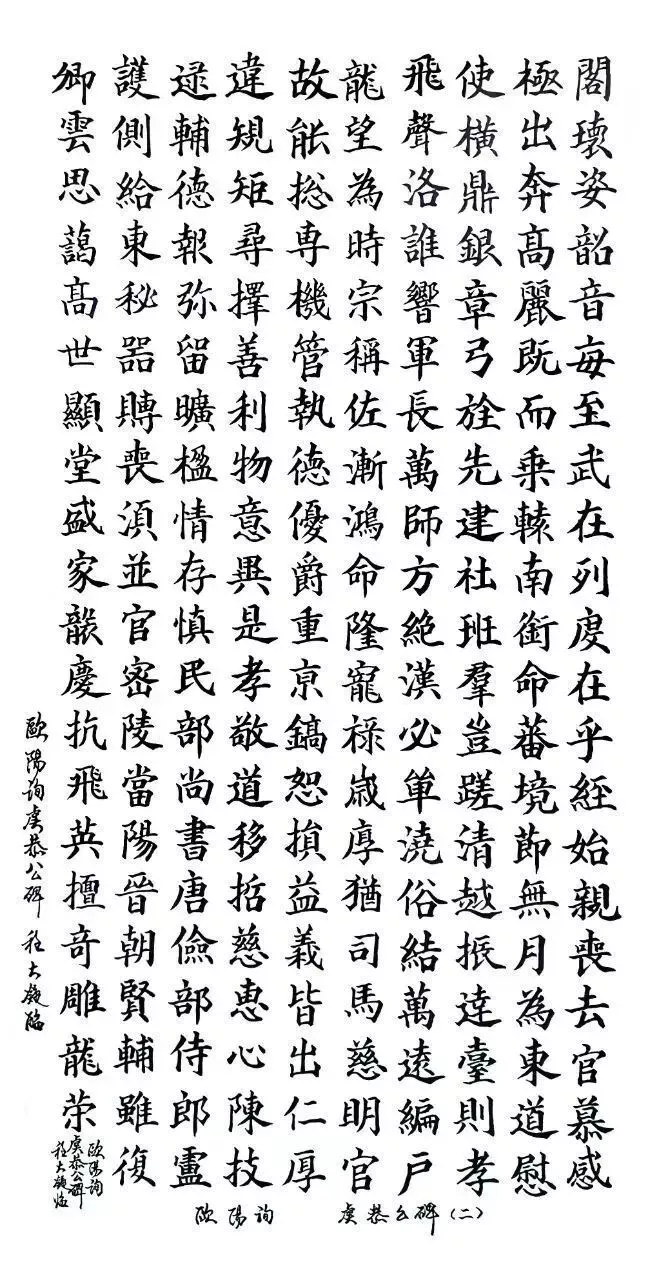 閣瓌姿韶音每至武在列度在乎經始親喪去官慕感
極出奔高麗既而乘轅南銜命蕃境節無月為東道慰
使橫鼎銀章弓旌先建社班羣豈蹉清越振達臺則孝
飛聲洛誰響軍長萬師方絕漢必單澆俗結萬遠編戶
龍望為時宗稱佐漸鴻命隆寵祿歲厚猶司馬慈明官
故能揔專機管執德優爵重京鎬恕損益義皆出仁厚
違規矩尋擇善利物意異是孝敬道移哲慈惠心陳技
逯輔德報弥留曠楹情存慎民部尚書唐儉部侍郎盧
護側給東秘器賻喪湏並官密陵當陽晉朝賢輔雖復
卿雲思藹高世顯堂盛家龑慶抗飛英擅奇雕龍荣
歐陽詢虞恭公碑 程大凝臨
歐陽詢
虞恭公碑
程大凝臨
歐陽詢 虞恭公碑(二)